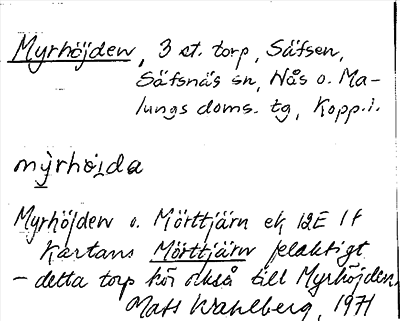 Myrhöjden, 3 st. torp, Säfsen,
Säfsnäs sn, Nås o. Ma-
lungs doms. tg, Kopp. l.
mỳrhöi̯da
Myrhöjden o. Mörttjärn ek 12E 1f
Kartans Mörttjärn felaktigt
– detta torp hör också till Myrhöjden.
Mats Wahlberg, 1971